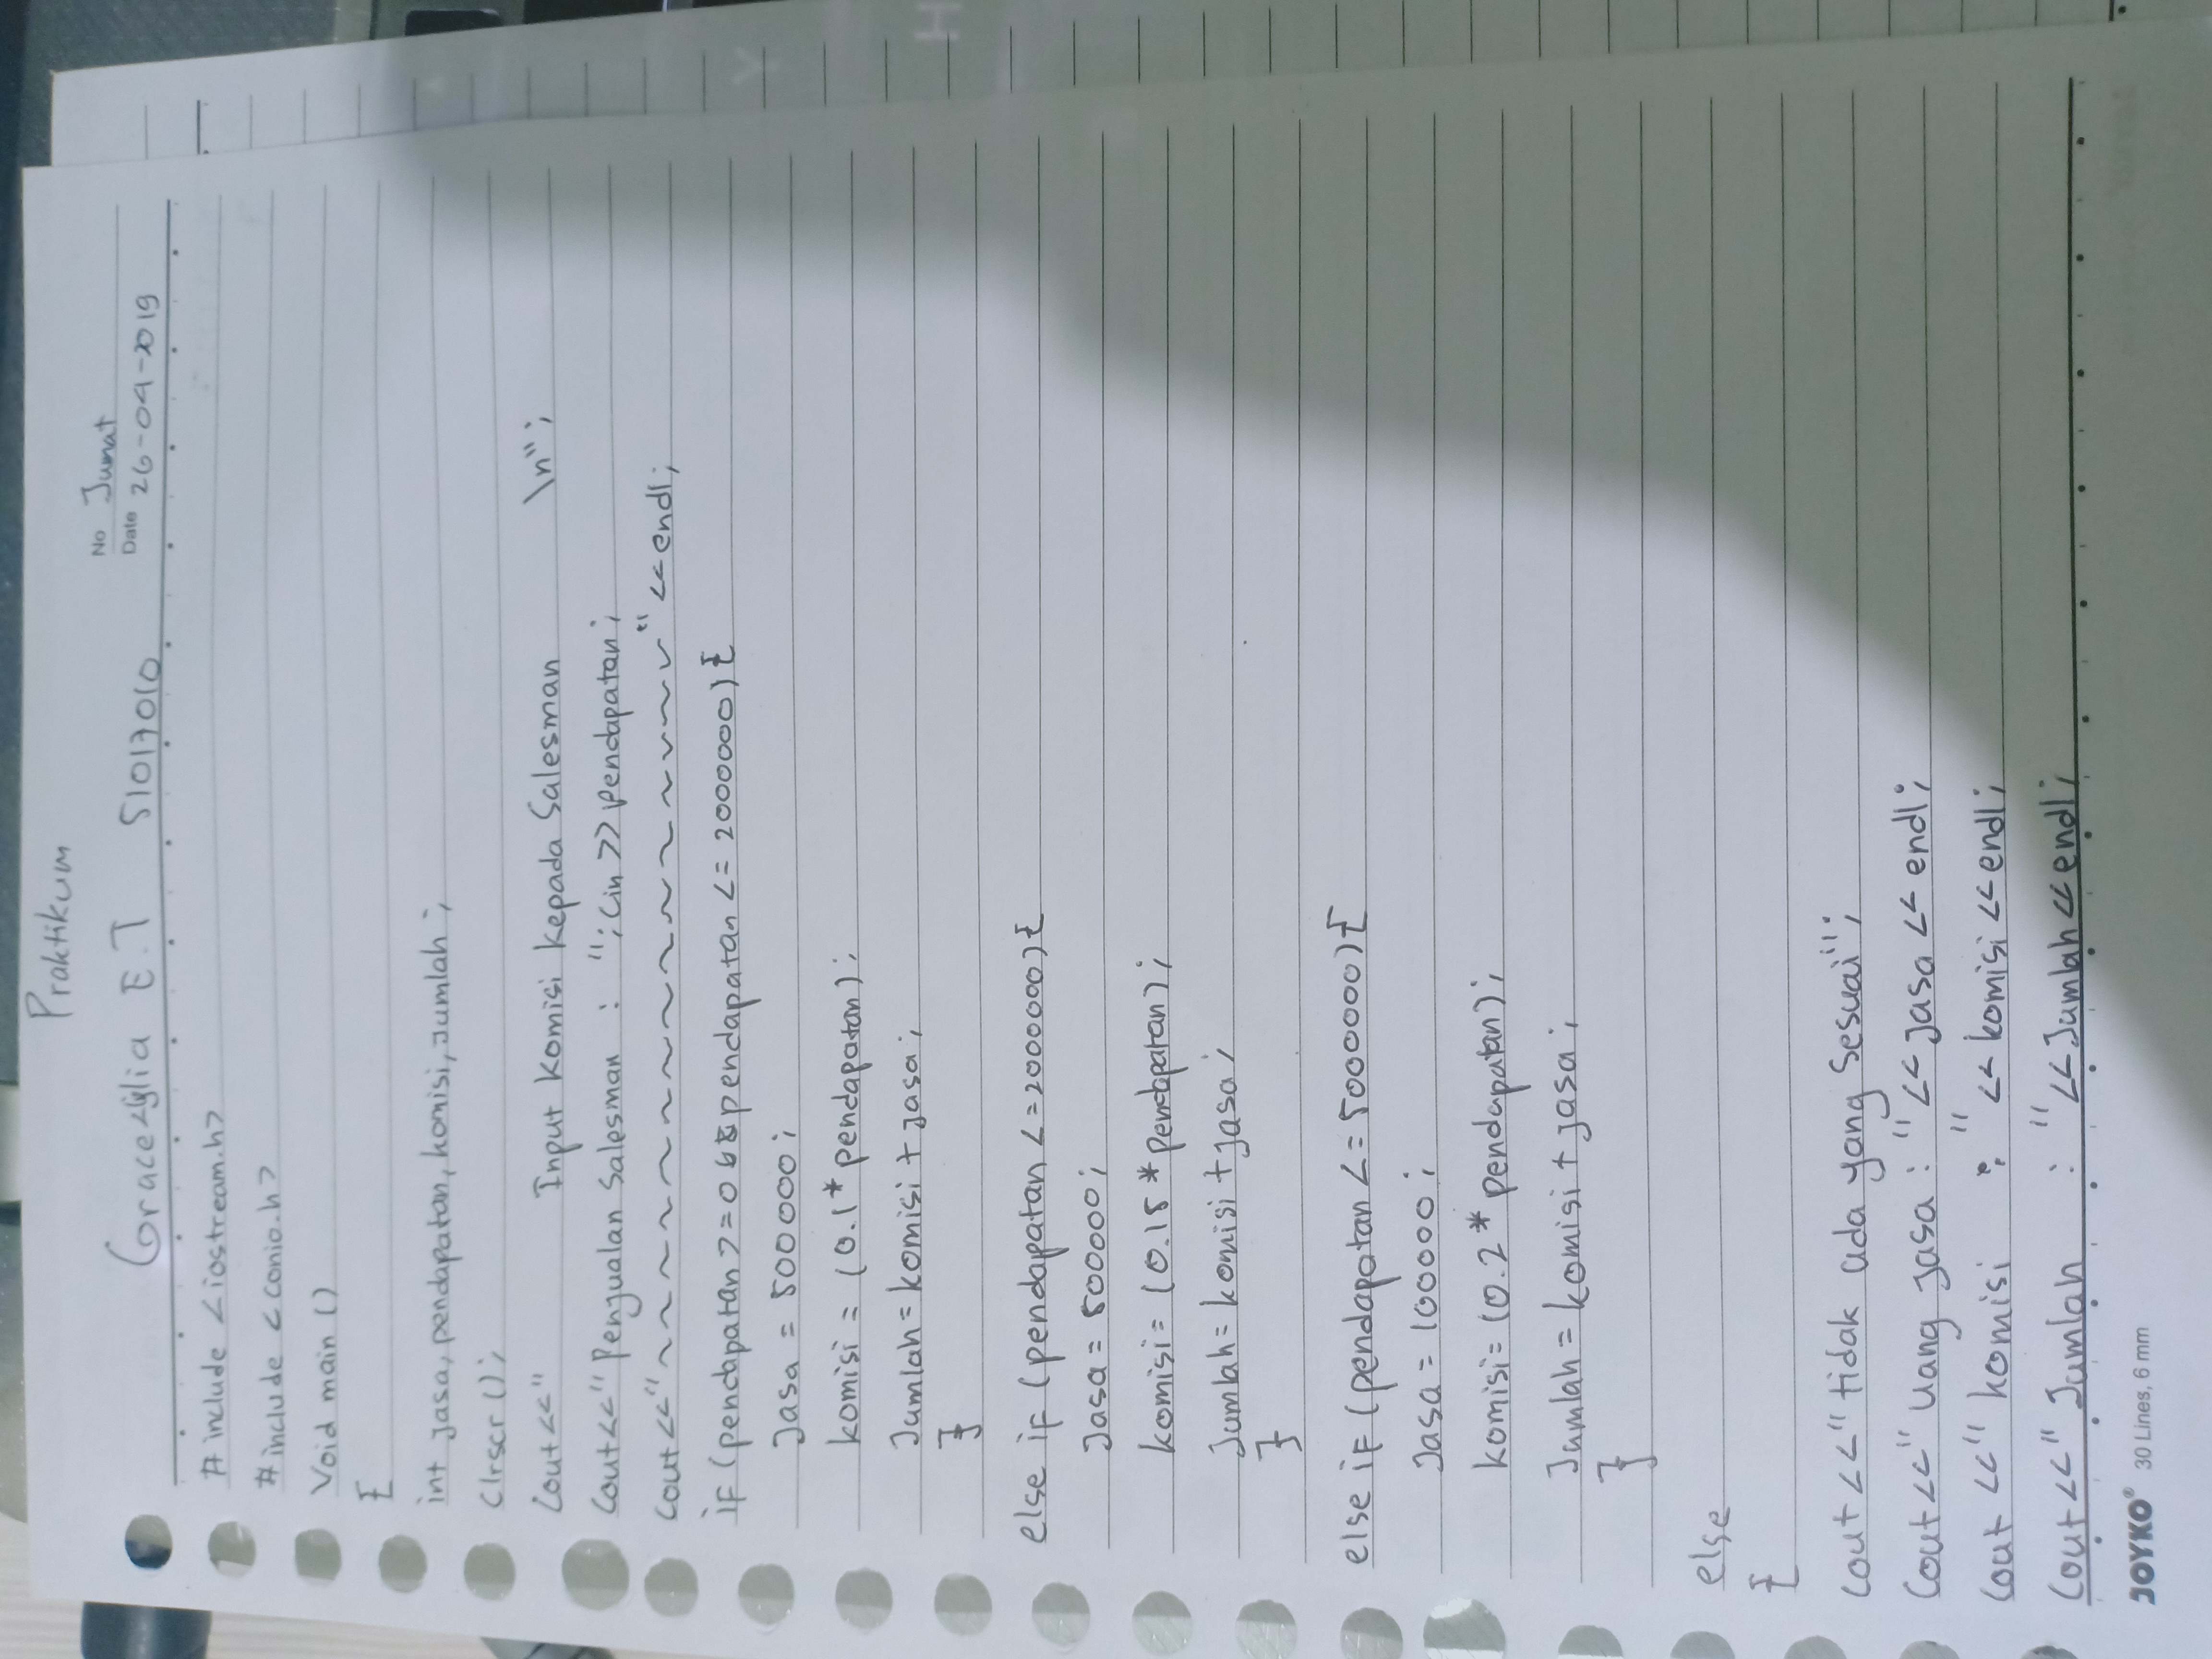 Praktikum
No Jumat
Date 26-04-2019
Grace E.T 51017010
# include <iostream.h>
# include <conio.h>
Void main ()
{
int jasa, pendapatan, komisi, jumlah;
Clrscr ();
Cout<<" Input Komisi Kepada Salesman \n";
Cout<<" Penjualan Salesman : "; Cin >> pendapatan;
Cout<<"~~~~~~~~~~~~~~~~~~~~" << endl;
if (pendapatan >= 0 && pendapatan <= 200000) {
Jasa = 500000;
komisi = (0.1* pendapatan);
Jumlah = komisi + jasa;
}
else if (pendapatan <= 2000000) {
Jasa = 500000;
komisi = (0.15 * pendapatan);
Jumlah = komisi + jasa;
}
else if (pendapatan <= 5000000) {
Jasa = 100000;
komisi = (0.2 * pendapatan);
Jumlah = komisi + jasa;
}
else
{
Cout <<" tidak ada yang sesuai";
Cout <<" uang jasa : " << jasa << endl;
Cout <<" komisi : " << komisi << endl;
Cout <<" Jumlah : " << Jumlah << endl;
JOYKO® 30 Lines, 6 mm
H